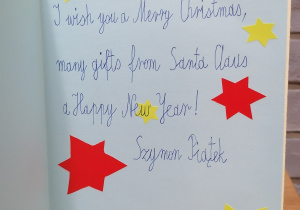 I wish you a Merry Christmas,
many gifts from Santa Claus
a Happy New Year!
Szymon Piątek